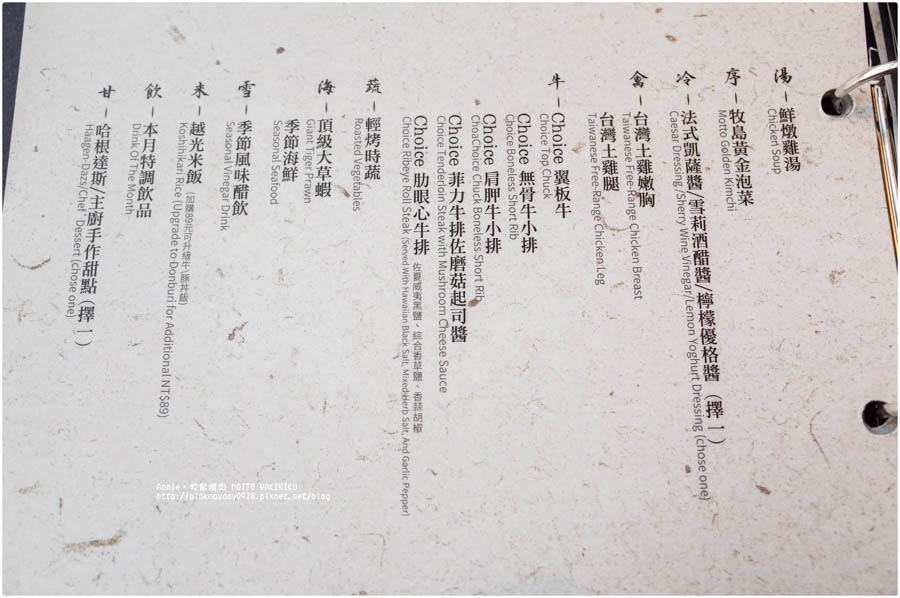 湯 – 鮮燉雞湯
Chicken Soup
序 – 牧島黃金泡菜
Motto Golden Kimchi
冷 – 法式凱薩醬/雪莉酒醋醬/檸檬優格醬 (擇一)
Caesar Dressing/Sherry Wine Vinegar/Lemon Yoghurt Dressing (chose one)
禽 – 台灣土雞嫩胸
Taiwanese Free-Range Chicken Breast
台灣土雞腿
Taiwanese Free-Range Chicken Leg
牛 – Choice 翼板牛
Choice Top Chuck
Choice 無骨牛小排
Choice Boneless Short Rib
Choice 肩胛牛小排
ChoaChoice Chuck Boneless Short Rib
Choice 菲力牛排佐磨菇起司醬
Choice Tenderloin Steak with Mushroom Cheese Sauce
Choice 肋眼心牛排 佐夏威夷黑鹽、綜合香草鹽、香蒜胡椒
Choice Ribeye Roll Steak (Served With Hawaiian Black Salt, Mixed Herb Salt, And Garlic Pepper)
蔬 – 輕烤時蔬
Roasted Vegetables
海 – 頂級大草蝦
Giant Tiger Prawn
季節海鮮
Seasonal Seafood
雪 – 季節風味醋飲
Seasonal Vinegar Drink
米 – 越光米飯 (加購89元可升級牛/豚丼飯)
Koshihikari Rice (Upgrade to Donburi for Additional NT$89)
飲 – 本月特調飲品
Drink Of The Month
甘 – 哈根達斯/主廚手作甜點 (擇一)
Häagen-Dazs/Chef' Dessert (chose one)
Annie。牧島燒肉 MOTTO YAKINIKU
http://pinkmayday0428.pixnet.net/blog